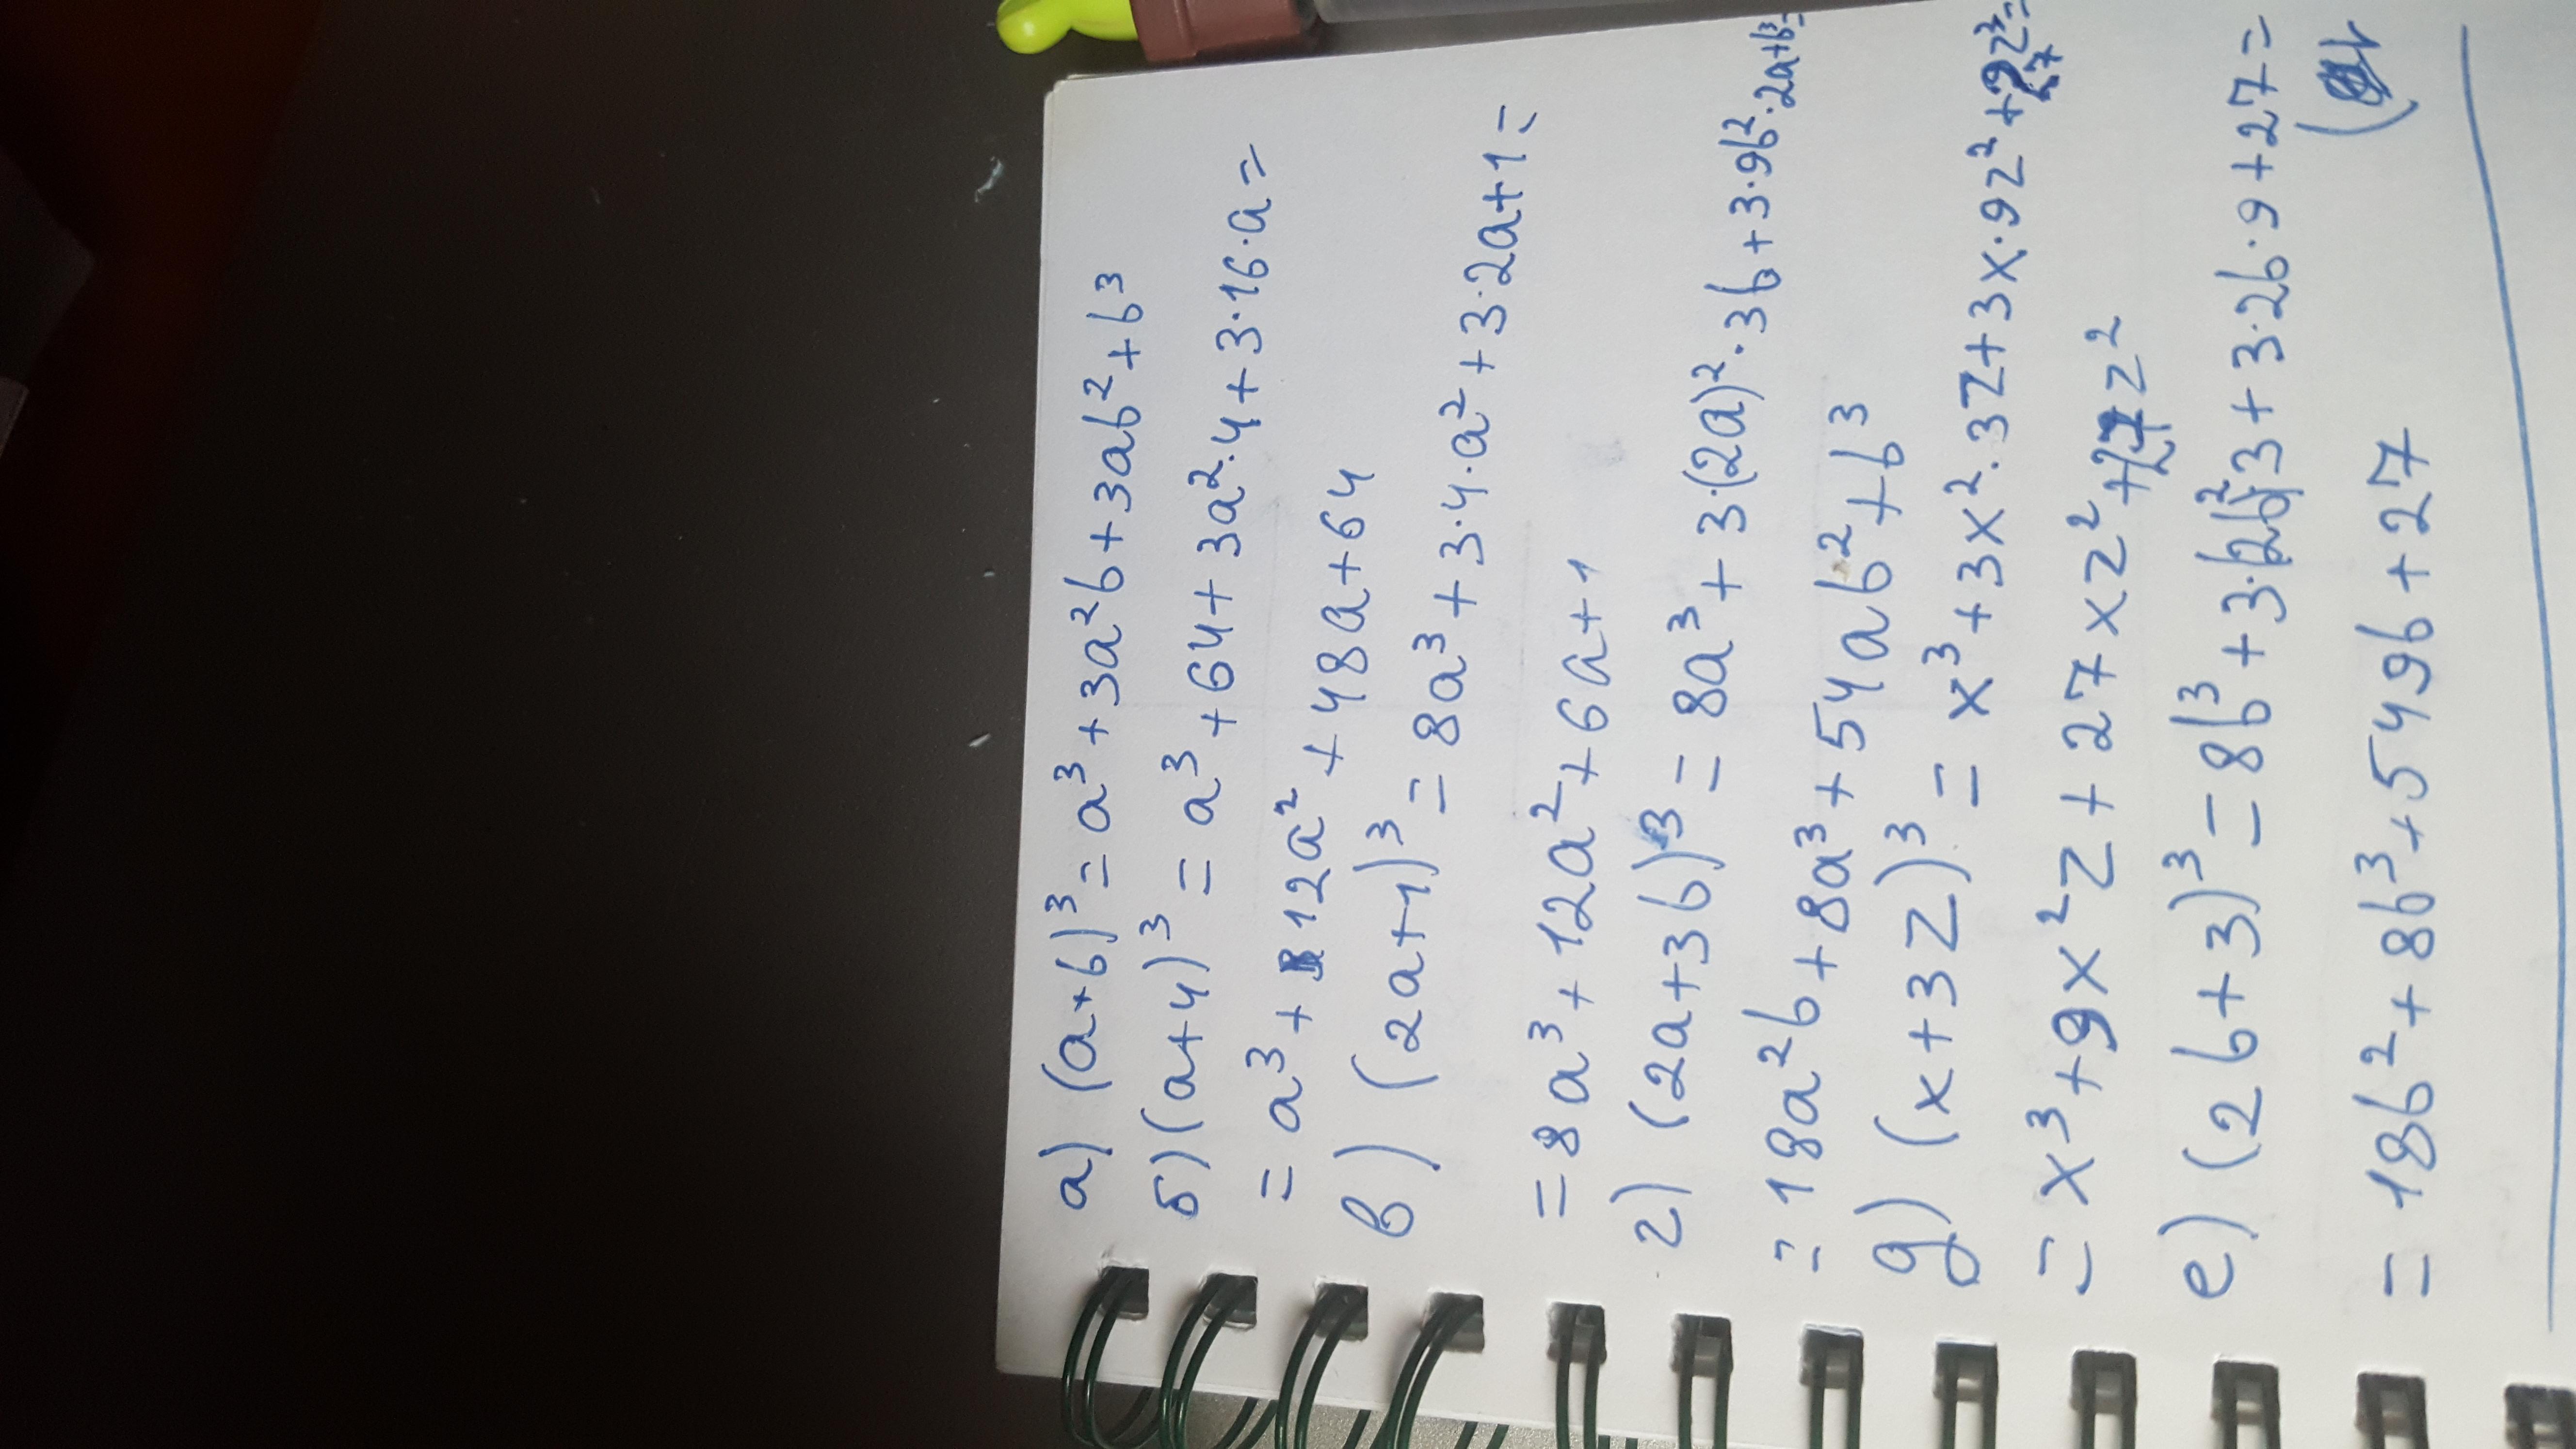 а) (a+b)³ = a³ + 3a²b + 3ab² + b³
б) (a+4)³ = a³ + 64 + 3a²·4 + 3·16·a =
= a³ + 12a² + 48a + 64
в) (2a+1)³ = 8a³ + 3·4·a² + 3·2a+1 =
= 8a³ + 12a² + 6a + 1
г) (2a+3b)³ = 8a³ + 3·(2a)²·3b + 3·9b²·2a+b³=
= 18a²b + 8a³ + 54ab² + b³
д) (x+3z)³ = x³ + 3x²·3z + 3x·9z² + 27z³=
= x³ + 9x²z + 27xz² + 27z²
е) (2b+3)³ = 8b³ + 3·(2b)²·3 + 3·2b·9 + 27 =
= 18b² + 8b³ + 549b + 27